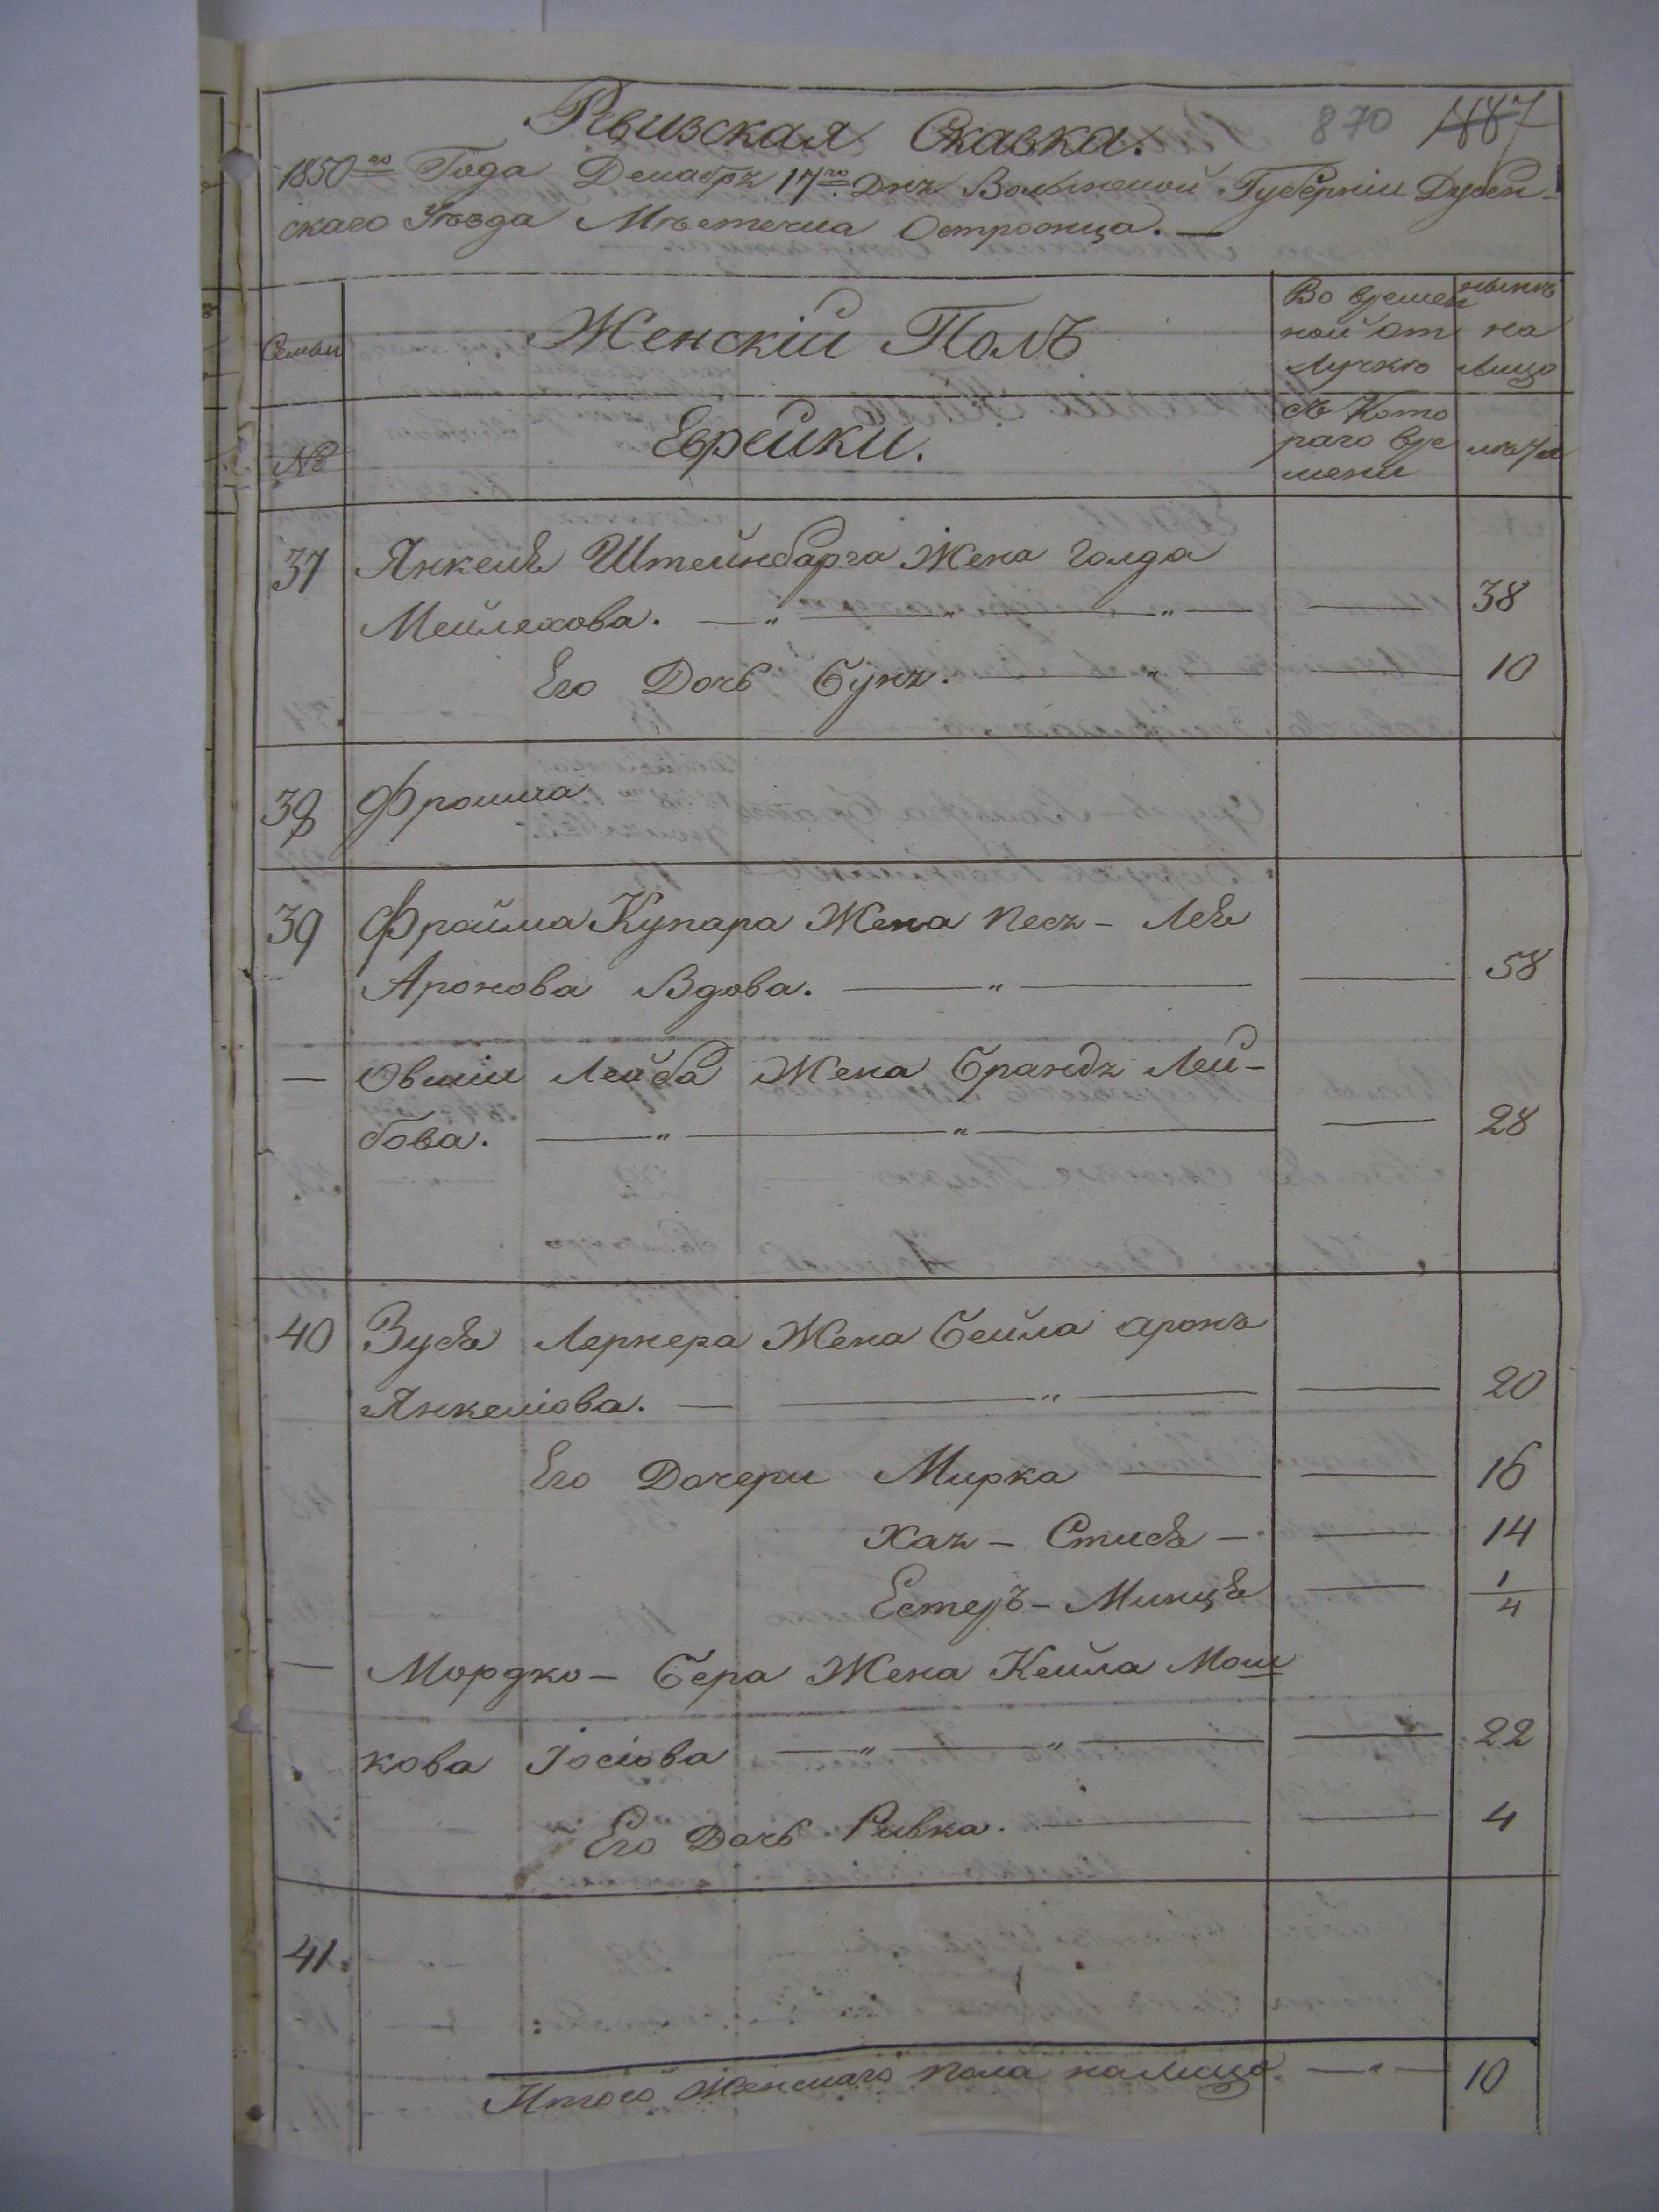 Рвизская Сказка.
870 1887
1850го Года Декабря 17го Дня Волынской Губерніи Дубен-
скаго Уѣзда Мѣстечка Острожца. —
Семьи
Женскій Полъ
Во времен
ной от
лучкѣ
нынѣ
на
лицо
№
Еврейки.
съ Кото
раго вре
мени
лѣта
37 Янкеля Штейнбарга Жена Голда
Мейлехова. — 38
Его Дочь Буня. — 10
38 Фроима
39 Фройма Купара Жена Песя - Лея
Аронова Вдова. — 58
— Овшіи Лейба Жена Брандя Лей-
бова. — 28
40 Зуся Лернера Жена Бейла Арона
Янкеліова. — 20
Его Дочери Мирка — 16
Хая - Стися — 14
Естеръ - Минця — 1/4
— Мордко - Бера Жена Кейла Мош
кова Іосіова — 22
Его Дочь Ривка. — 4
41.
Итого Женскаго пола на лицо. — 10